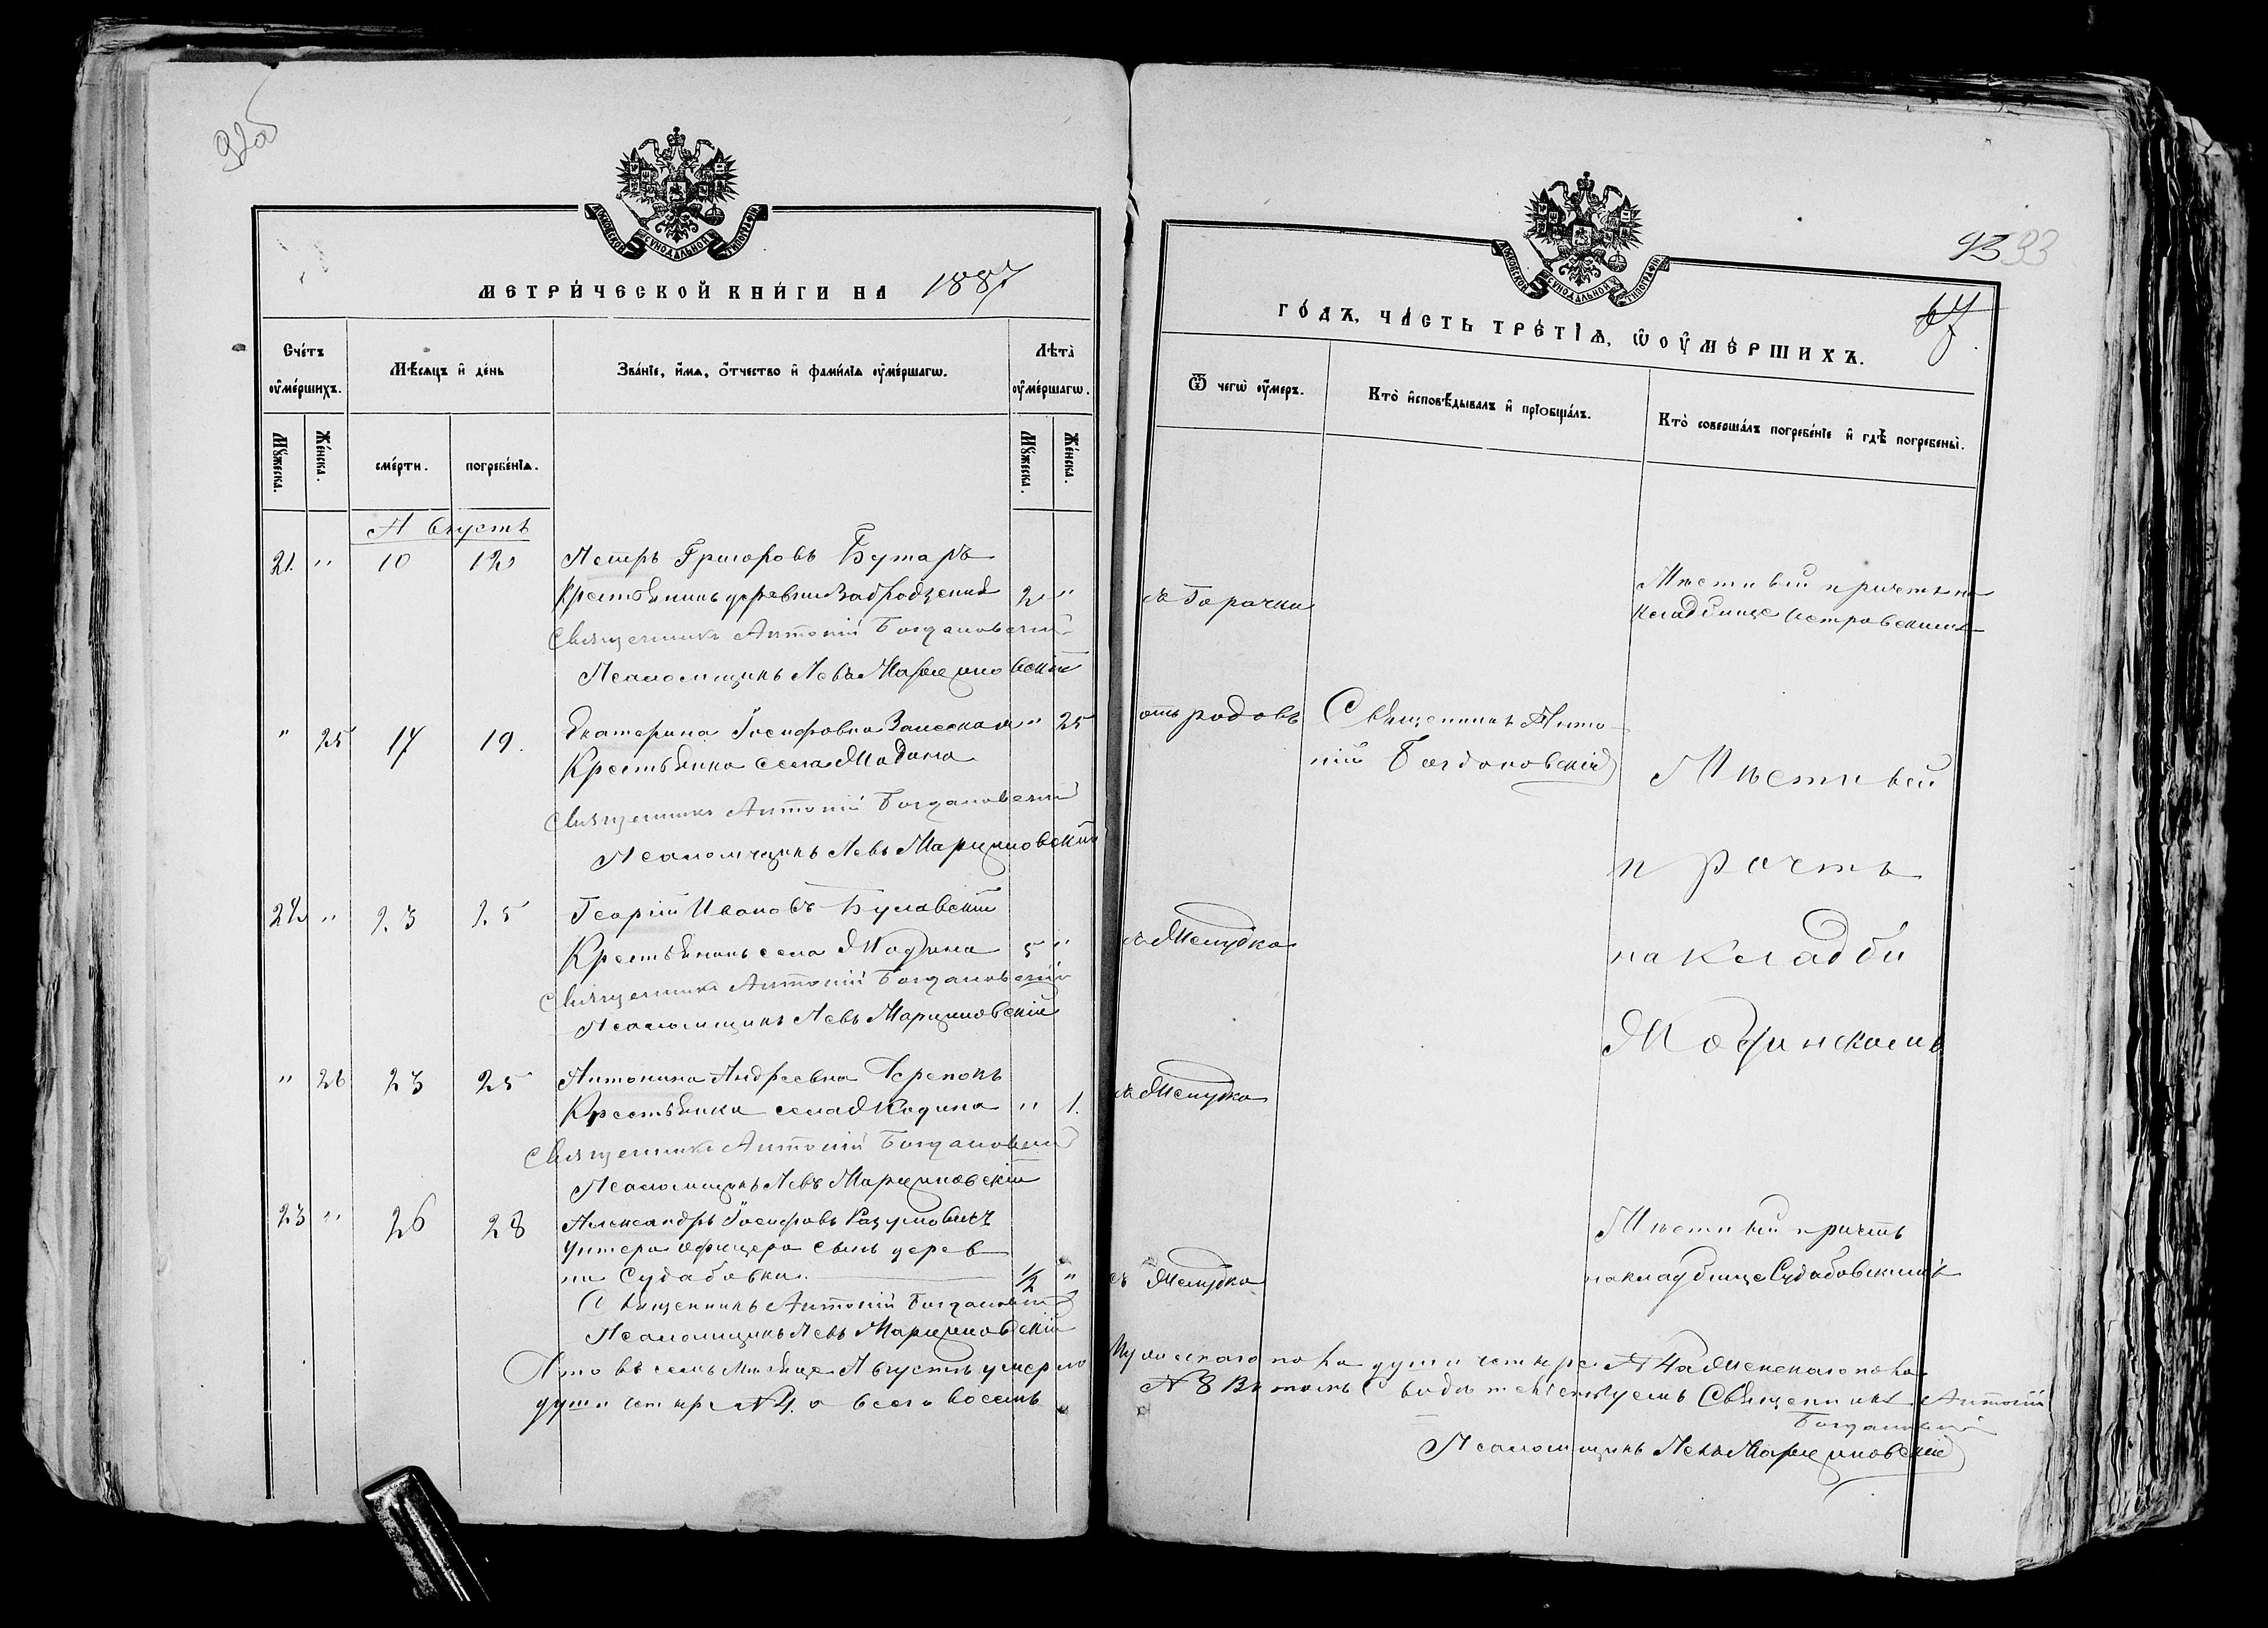 92об
МОСКОВСКОЙ СѴНОДАЛЬНОЙ ТИПОГРАФІИ
МЕТРИ́ЧЕСКОЙ КНИ́ГИ НА 1887
Сче́тъ ᲂу҆ме́ршихъ.
Мѣ́сяцъ и҆ де́нь
Зва́нїе, и҆́мѧ, ѻ҆́тчество и҆ фами́лїѧ ᲂу҆ме́ршагѡ.
Лѣ́та ᲂу҆ме́ршагѡ.
Мꙋ́жеска.
Же́нска.
сме́рти.
погребе́нїѧ.
Мꙋ́жеска.
Же́нска.
Августъ
21. " 10 12 Петръ Григоровъ Бутаръ
Крестьянинъ деревни 2 "
Священникъ Антоній Богдановскій
Псаломщикъ Левъ Марциновскій
" 25 17 19. Екатерина Іосифовна " 25
Крестьянка села Жодина
Священникъ Антоній Богдановскій
Псаломщикъ Левъ Марциновскій
22 " 23 25 Георгій Ивановъ Булавскій
Крестьянинъ села Жодина 5 "
Священникъ Антоній Богдановскій
Псаломщикъ Левъ Марциновскій
" 26 23 25 Антонина Андреевна Черепокъ
Крестьянка села Жодина " 1.
Священникъ Антоній Богдановскій
Псаломщикъ Левъ Марциновскій
23 " 26 28 Александръ Іосифовъ Разумовичъ
Унтера офицера сынъ дерев
ни Судабовки. 1/2 "
Священникъ Антоній Богдановскій
Псаломщикъ Левъ Марциновскій
Что въ семъ мѣсяце Августѣ умерло
душъ четыре №4. а всего восемь
93 93
67
МОСКОВСКОЙ СѴНОДАЛЬНОЙ ТИПОГРАФІИ
ГО́ДЪ, ЧА́СТЬ ТРЕ́ТЇѦ, Ѡ҆ ᲂУ҆МЕ́РШИХЪ.
Ѿ чегѡ̀ ᲂу҆́меръ.
Кто̀ и҆сповѣ́дывалъ и҆ прїобща́лъ.
Кто̀ соверша́лъ погребе́нїе и҆ гдѣ̀ погребены̀.
Горячки
Мѣстный причтъ на
кладбище
отъ родовъ Священникъ Анто-
ній Богдановскій
Мѣстный
причтъ
на кладби
Жодинскомъ
Желудка
Желудка
Мѣстный причтъ
на кладбище Судабовскимъ
съ Желудка
Мужескаго пола душъ четыре №4 а Женскаго пола
№8 Въ томъ свидѣтельствуемъ Священникъ Антоній
Богдановскій
Псаломщикъ Левъ Марциновскій